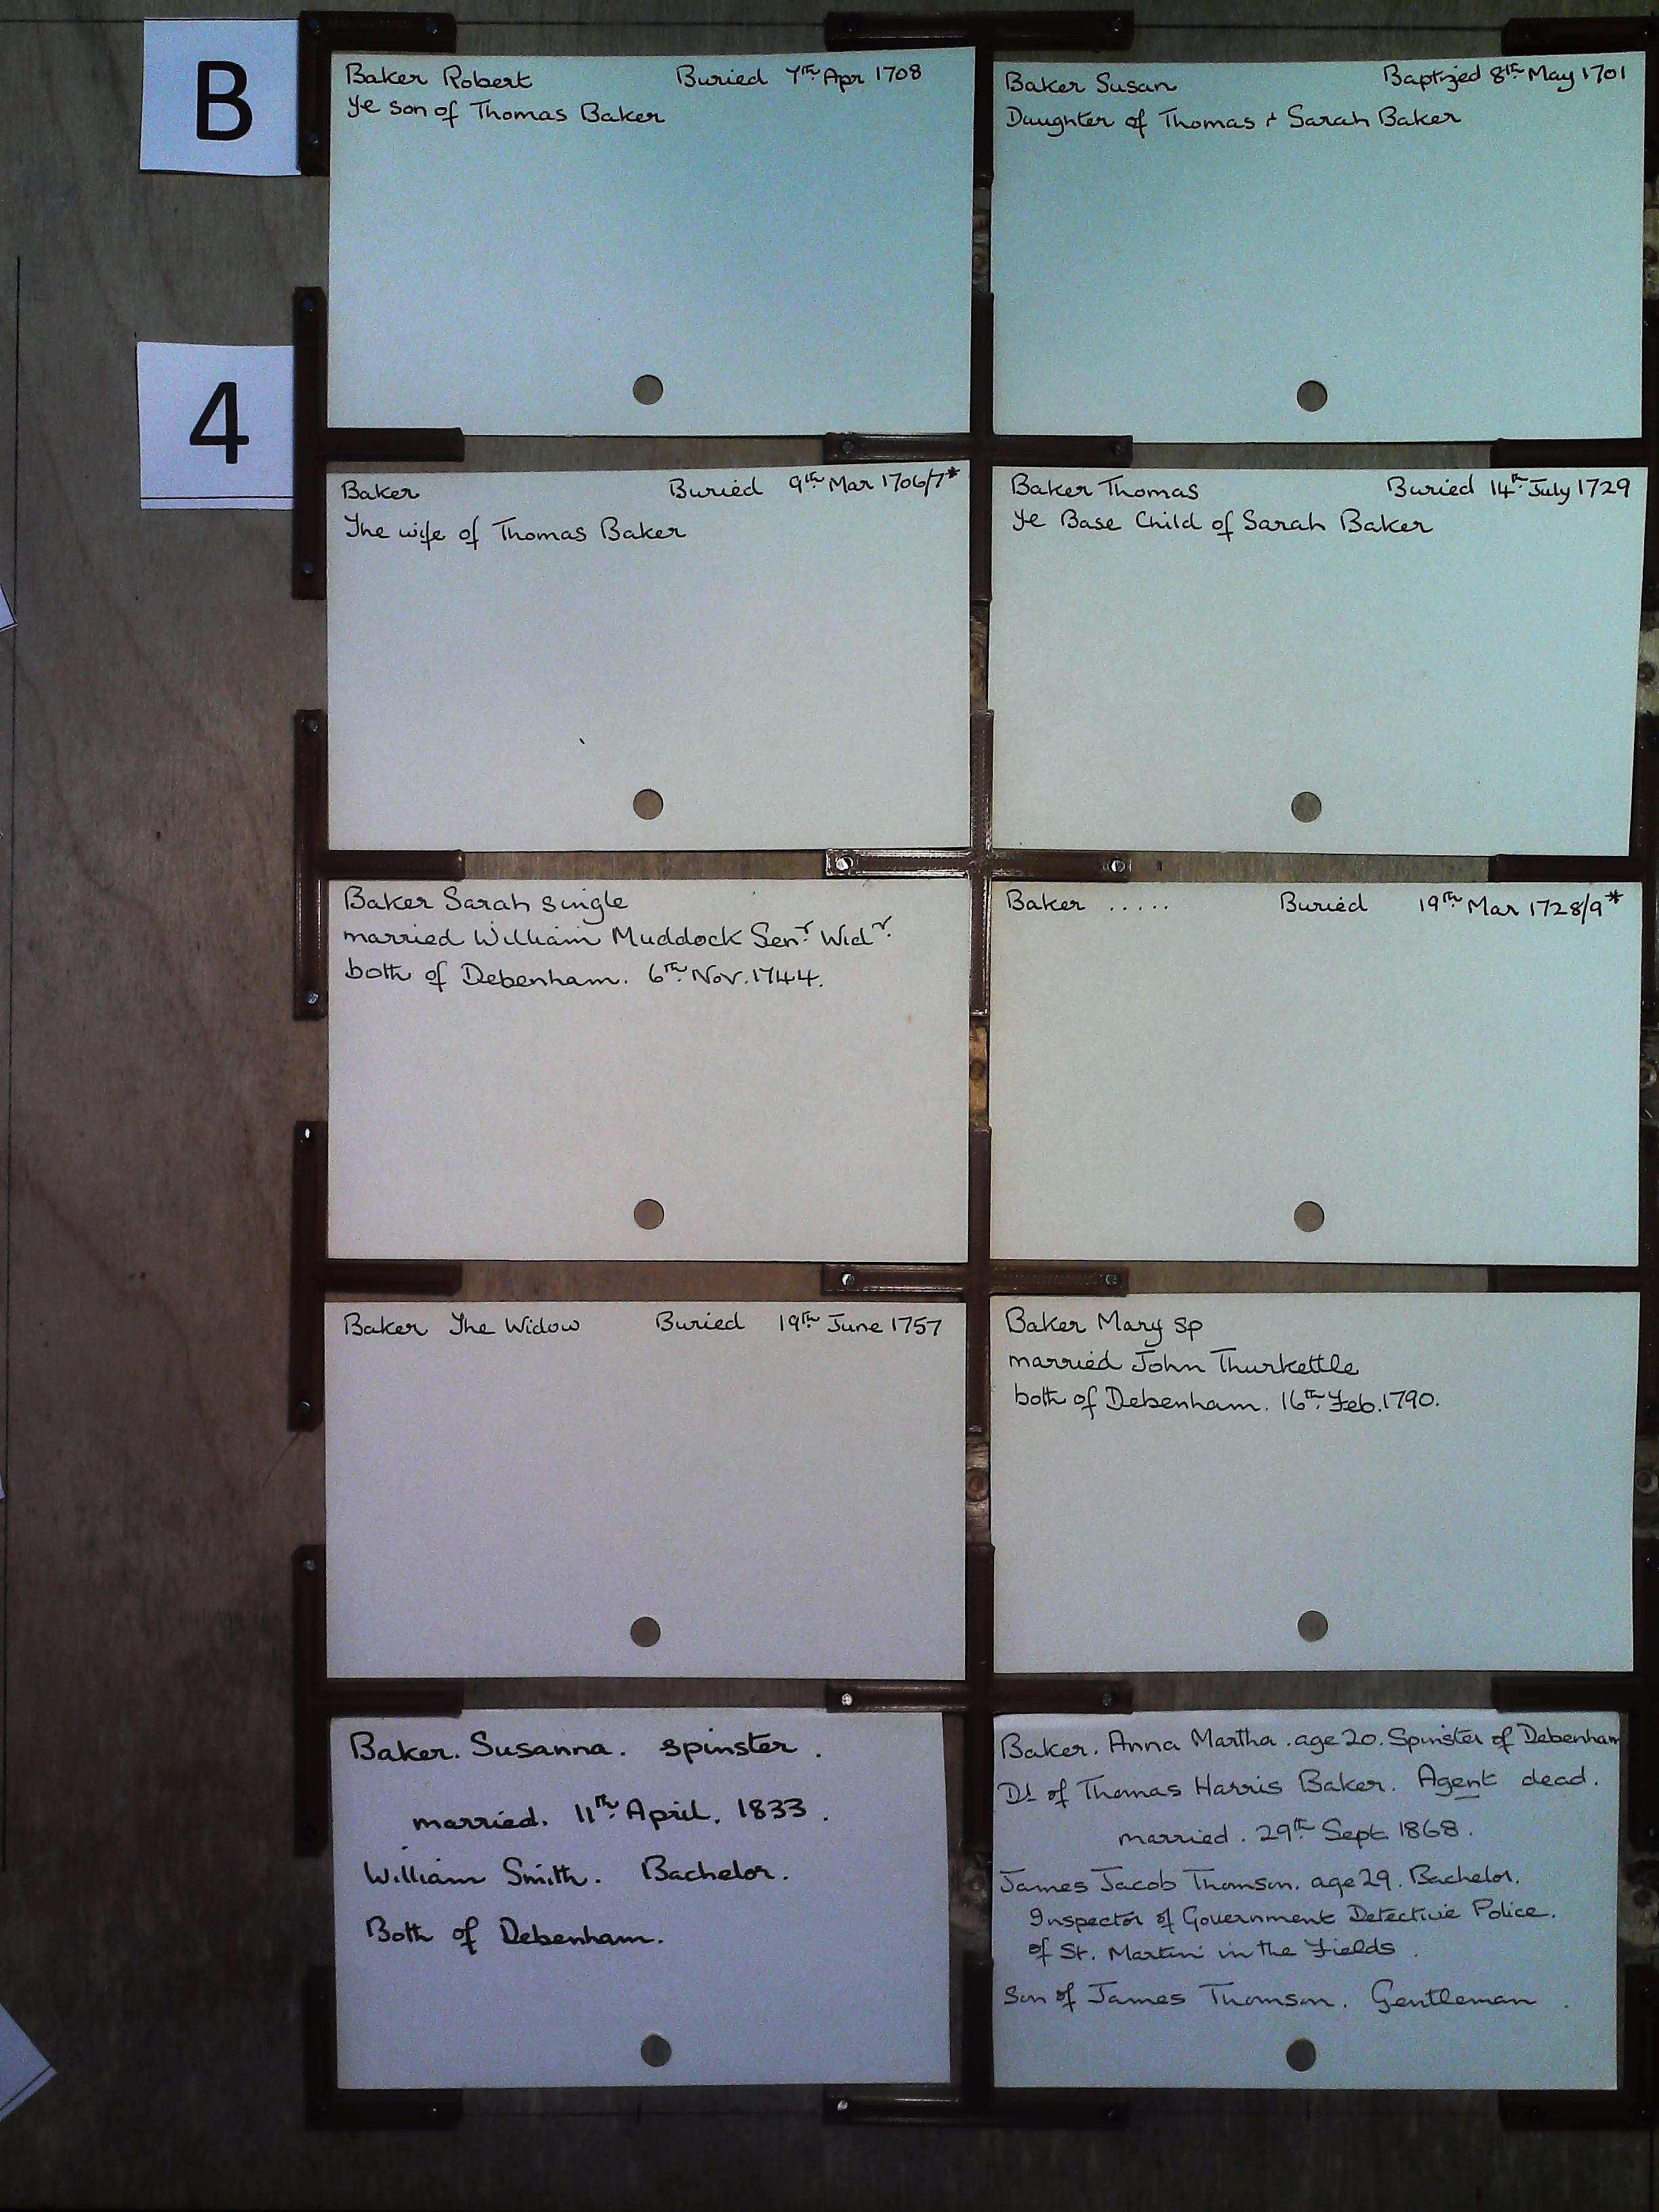 B
4
Baker Robert Buried 7th Apr 1708
Ye son of Thomas Baker
Baker Susan Baptized 8th May 1701
Daughter of Thomas + Sarah Baker
Baker Buried 9th Mar 1706/7*
The wife of Thomas Baker
Baker Thomas Buried 14th July 1729
Ye Base Child of Sarah Baker
Baker Sarah single
married William Muddock Senr Widr.
both of Debenham. 6th Nov. 1744.
Baker ..... Buried 19th Mar 1728/9*
Baker The Widow Buried 19th June 1757
Baker Mary sp
married John Thurkettle
both of Debenham. 16th Feb. 1790.
Baker. Susanna. spinster.
married. 11th April. 1833.
William Smith. Bachelor.
Both of Debenham.
Baker. Anna Martha. age 20. Spinster of Debenham
Dt of Thomas Harris Baker. Agent dead.
married. 29th Sept 1868.
James Jacob Thomson. age 29. Bachelor.
Inspector of Government Detective Police.
of St. Martin in the Fields.
Son of James Thomson. Gentleman.